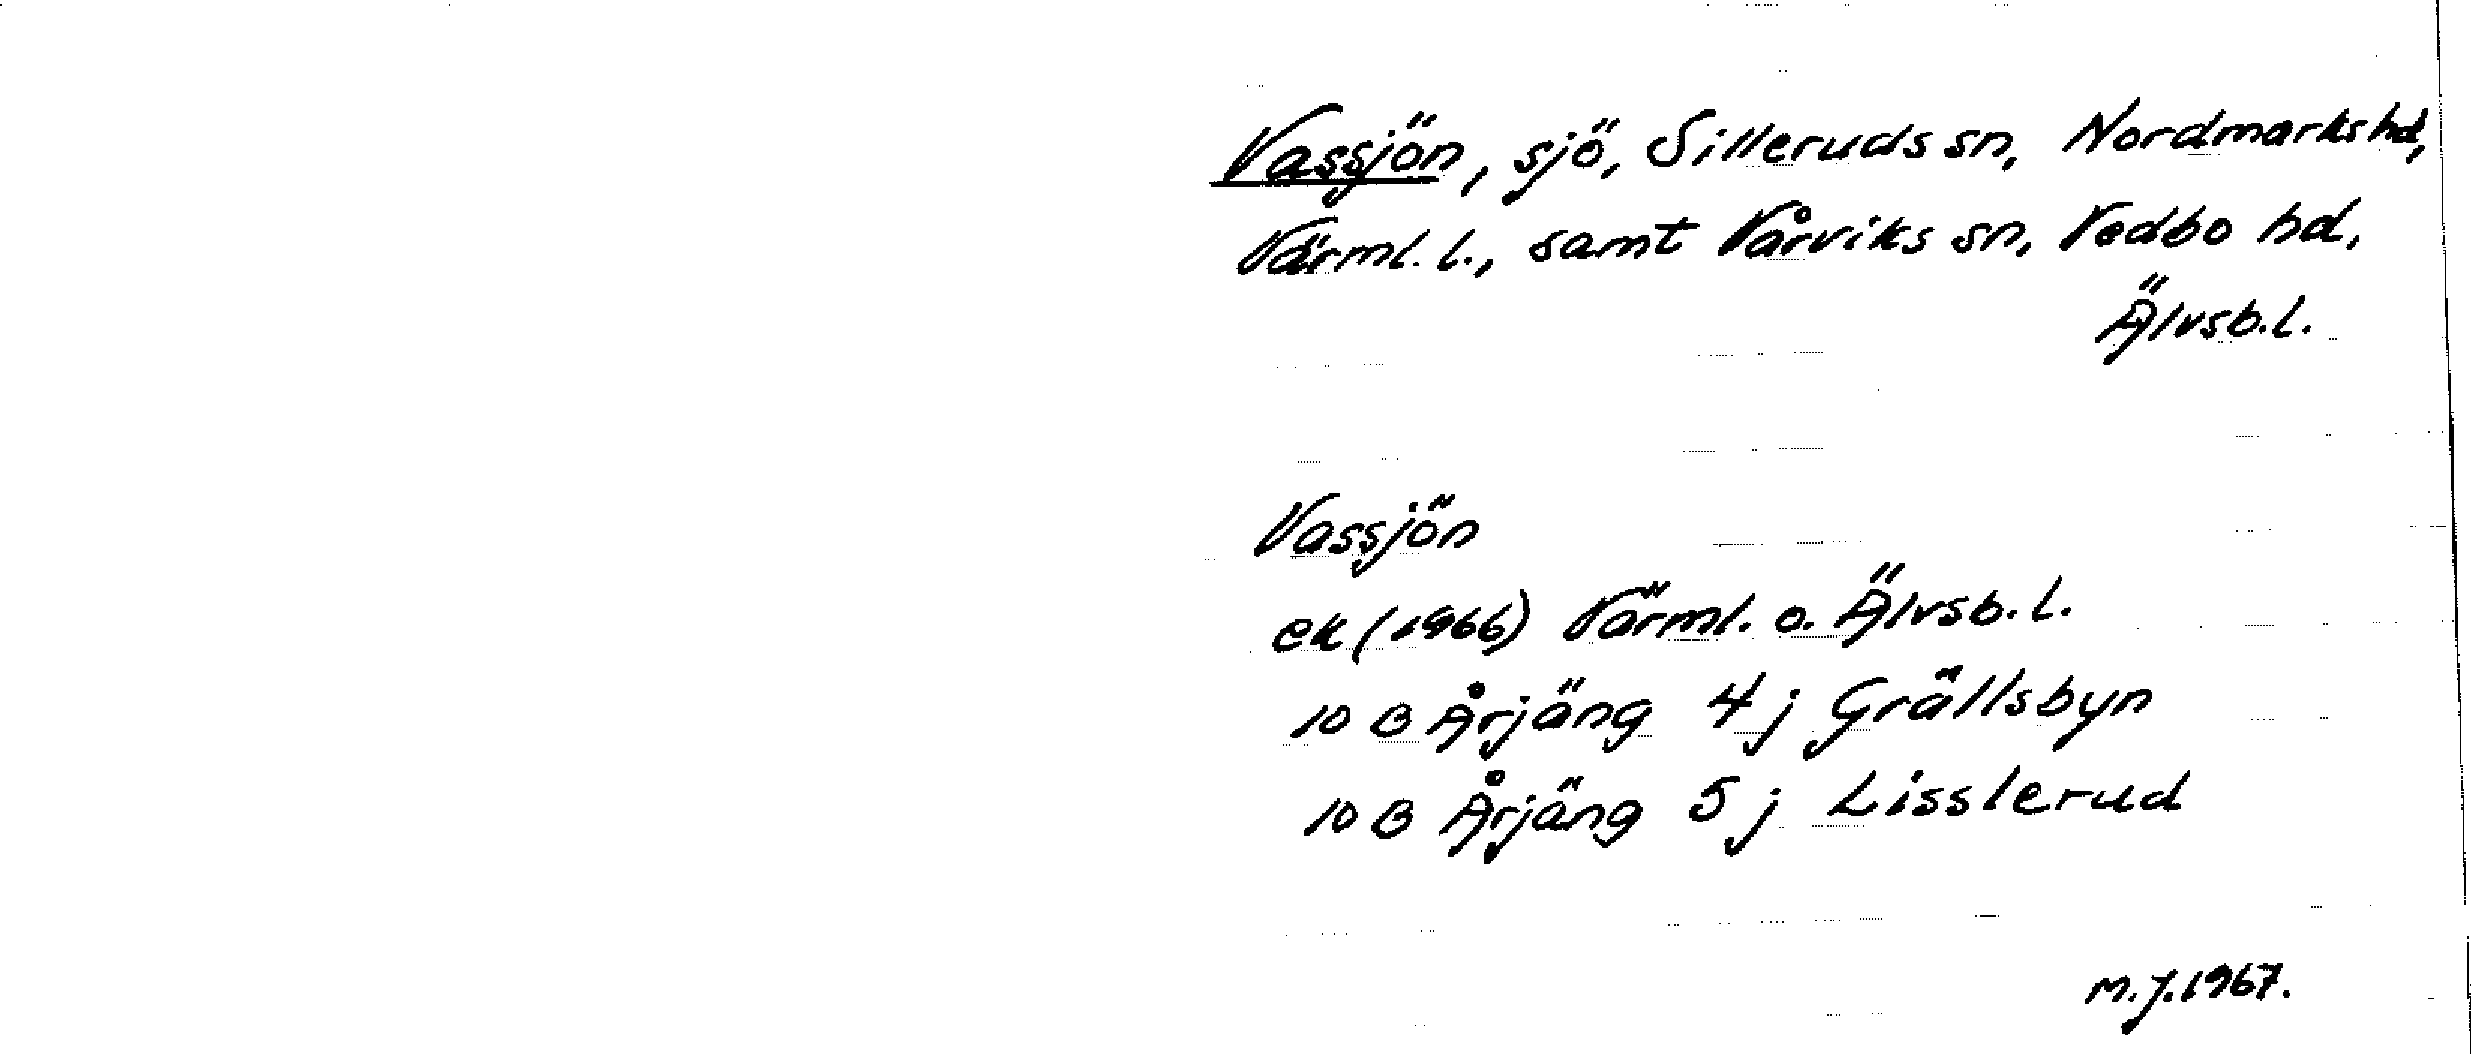 Vassjön, sjö, Silleruds sn, Nordmarks hd,
Värml. l., samt Vårviks sn, Vedbo hd,
Älvsb. l.
Vassjön
ek (1966) Värml. o. Älvsb. l.
10 B Årjäng 4 j Grällsbyn
10 B Årjäng 5 j Lisslerud
M. J. 1967.